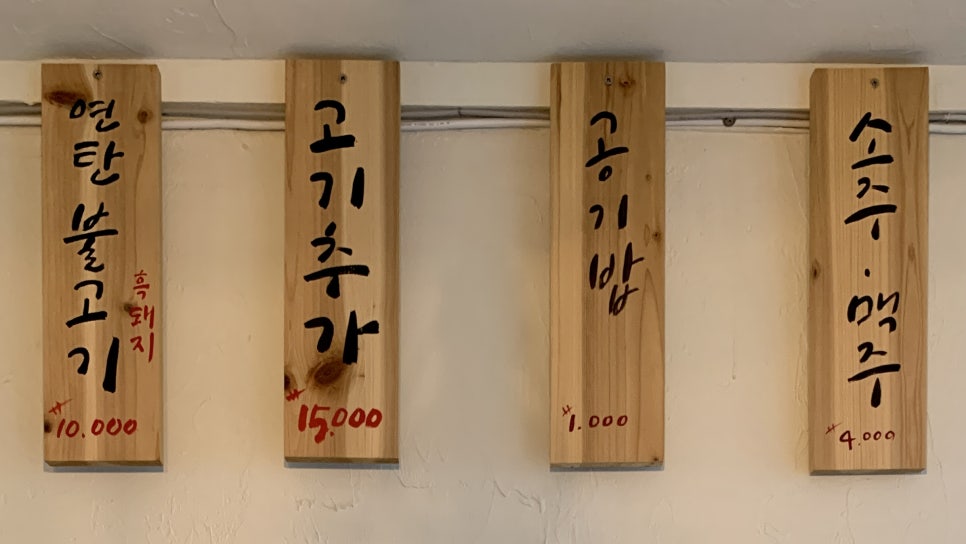 연탄불고기
흑돼지
₩10.000
고기추가
₩15.000
공기밥
₩1.000
소주·맥주
₩4.000